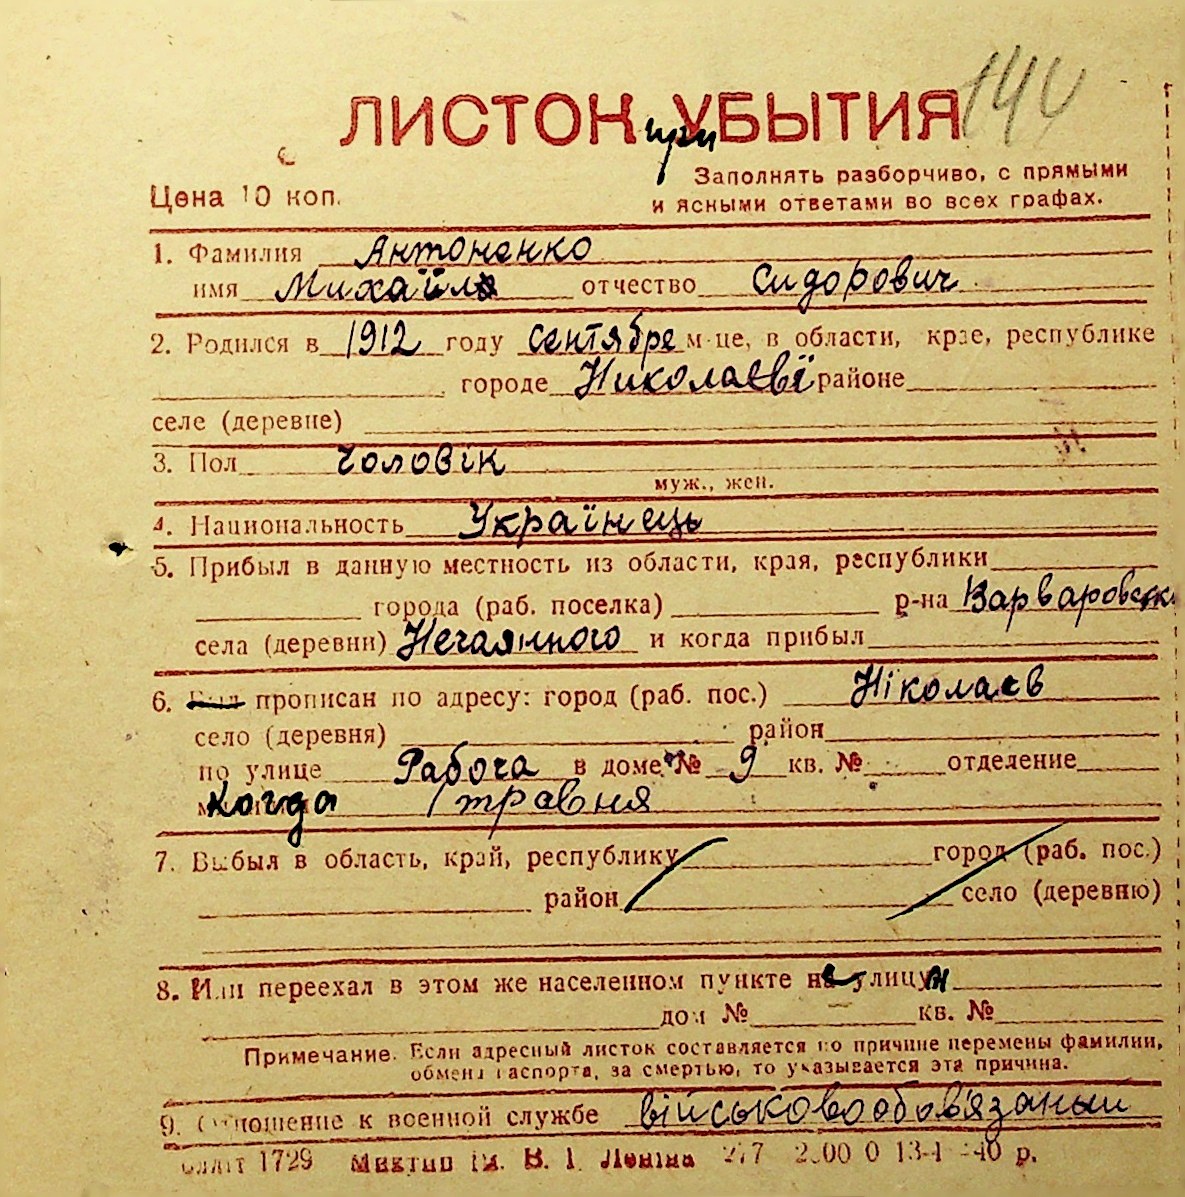 144
ЛИСТОК УБЫТИЯ
при
Цена 10 коп.
Заполнять разборчиво, с прямыми
и ясными ответами во всех графах.
1. Фамилия Антоненко
имя Михайло отчество Сидорович
2. Родился в 1912 году сентябре м-це, в области, крае, республике
городе Николаєві районе
селе (деревне)
3. Пол чоловік
муж., жен.
4. Национальность Українець
5. Прибыл в данную местность из области, края, республики
города (раб. поселка) р-на Варваровск.
села (деревни) Нечаянного и когда прибыл
6. Был прописан по адресу: город (раб. пос.) Ніколаєв
село (деревня) район
по улице Рабоча в доме № 9 кв. № отделение
когда 1 травня
7. Выбыл в область, край, республику город (раб. пос.)
район село (деревню)
8. Или переехал в этом же населенном пункте на улицу
дом № кв. №
Примечание. Если адресный листок составляется по причине перемены фамилии,
обмена паспорта, за смертью, то указывается эта причина.
9. Отношение к военной службе військовообов'язаный
1729 В. І. Леніна 40 р.